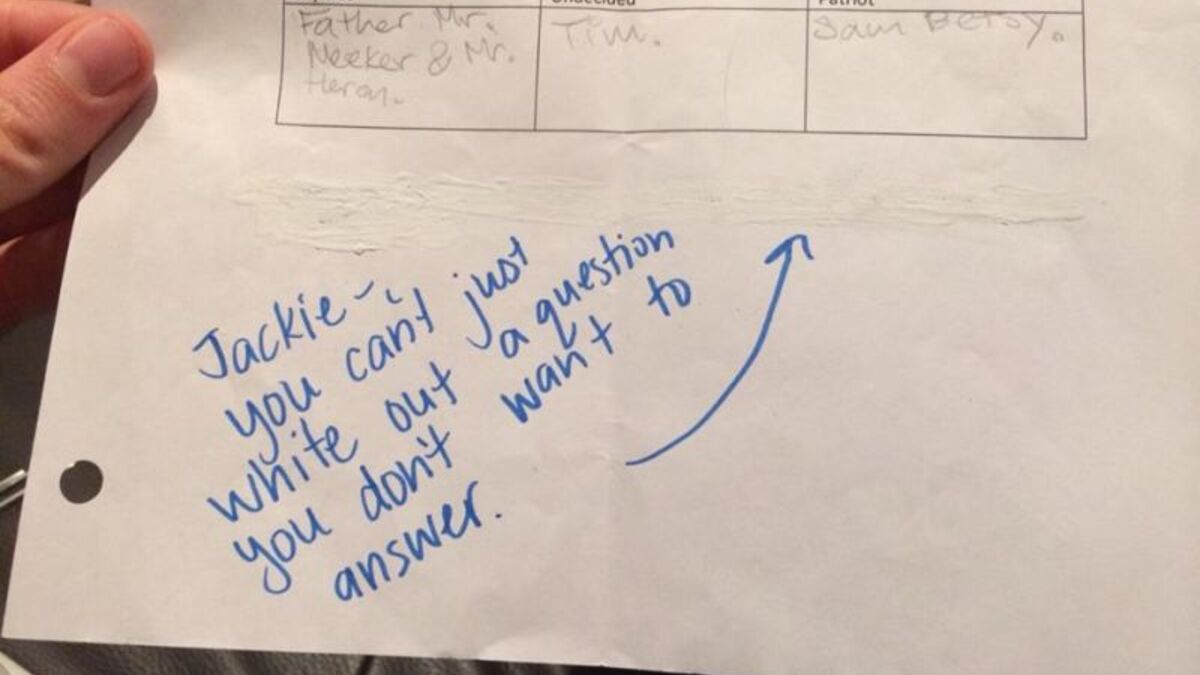 Undecided
Patriot
Father, Mr.
Neeker & Mr.
Heron.
Tim.
Sam Betsy.
Jackie -
you can't just
white out a question
you don't want to
answer.